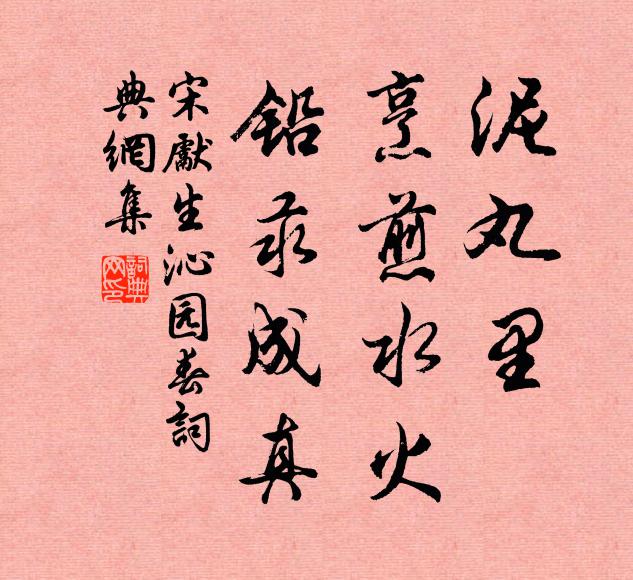 泥丸里
烹煎水火
铅汞成真
宋獻生沁园春詞
典網集
詞典網印